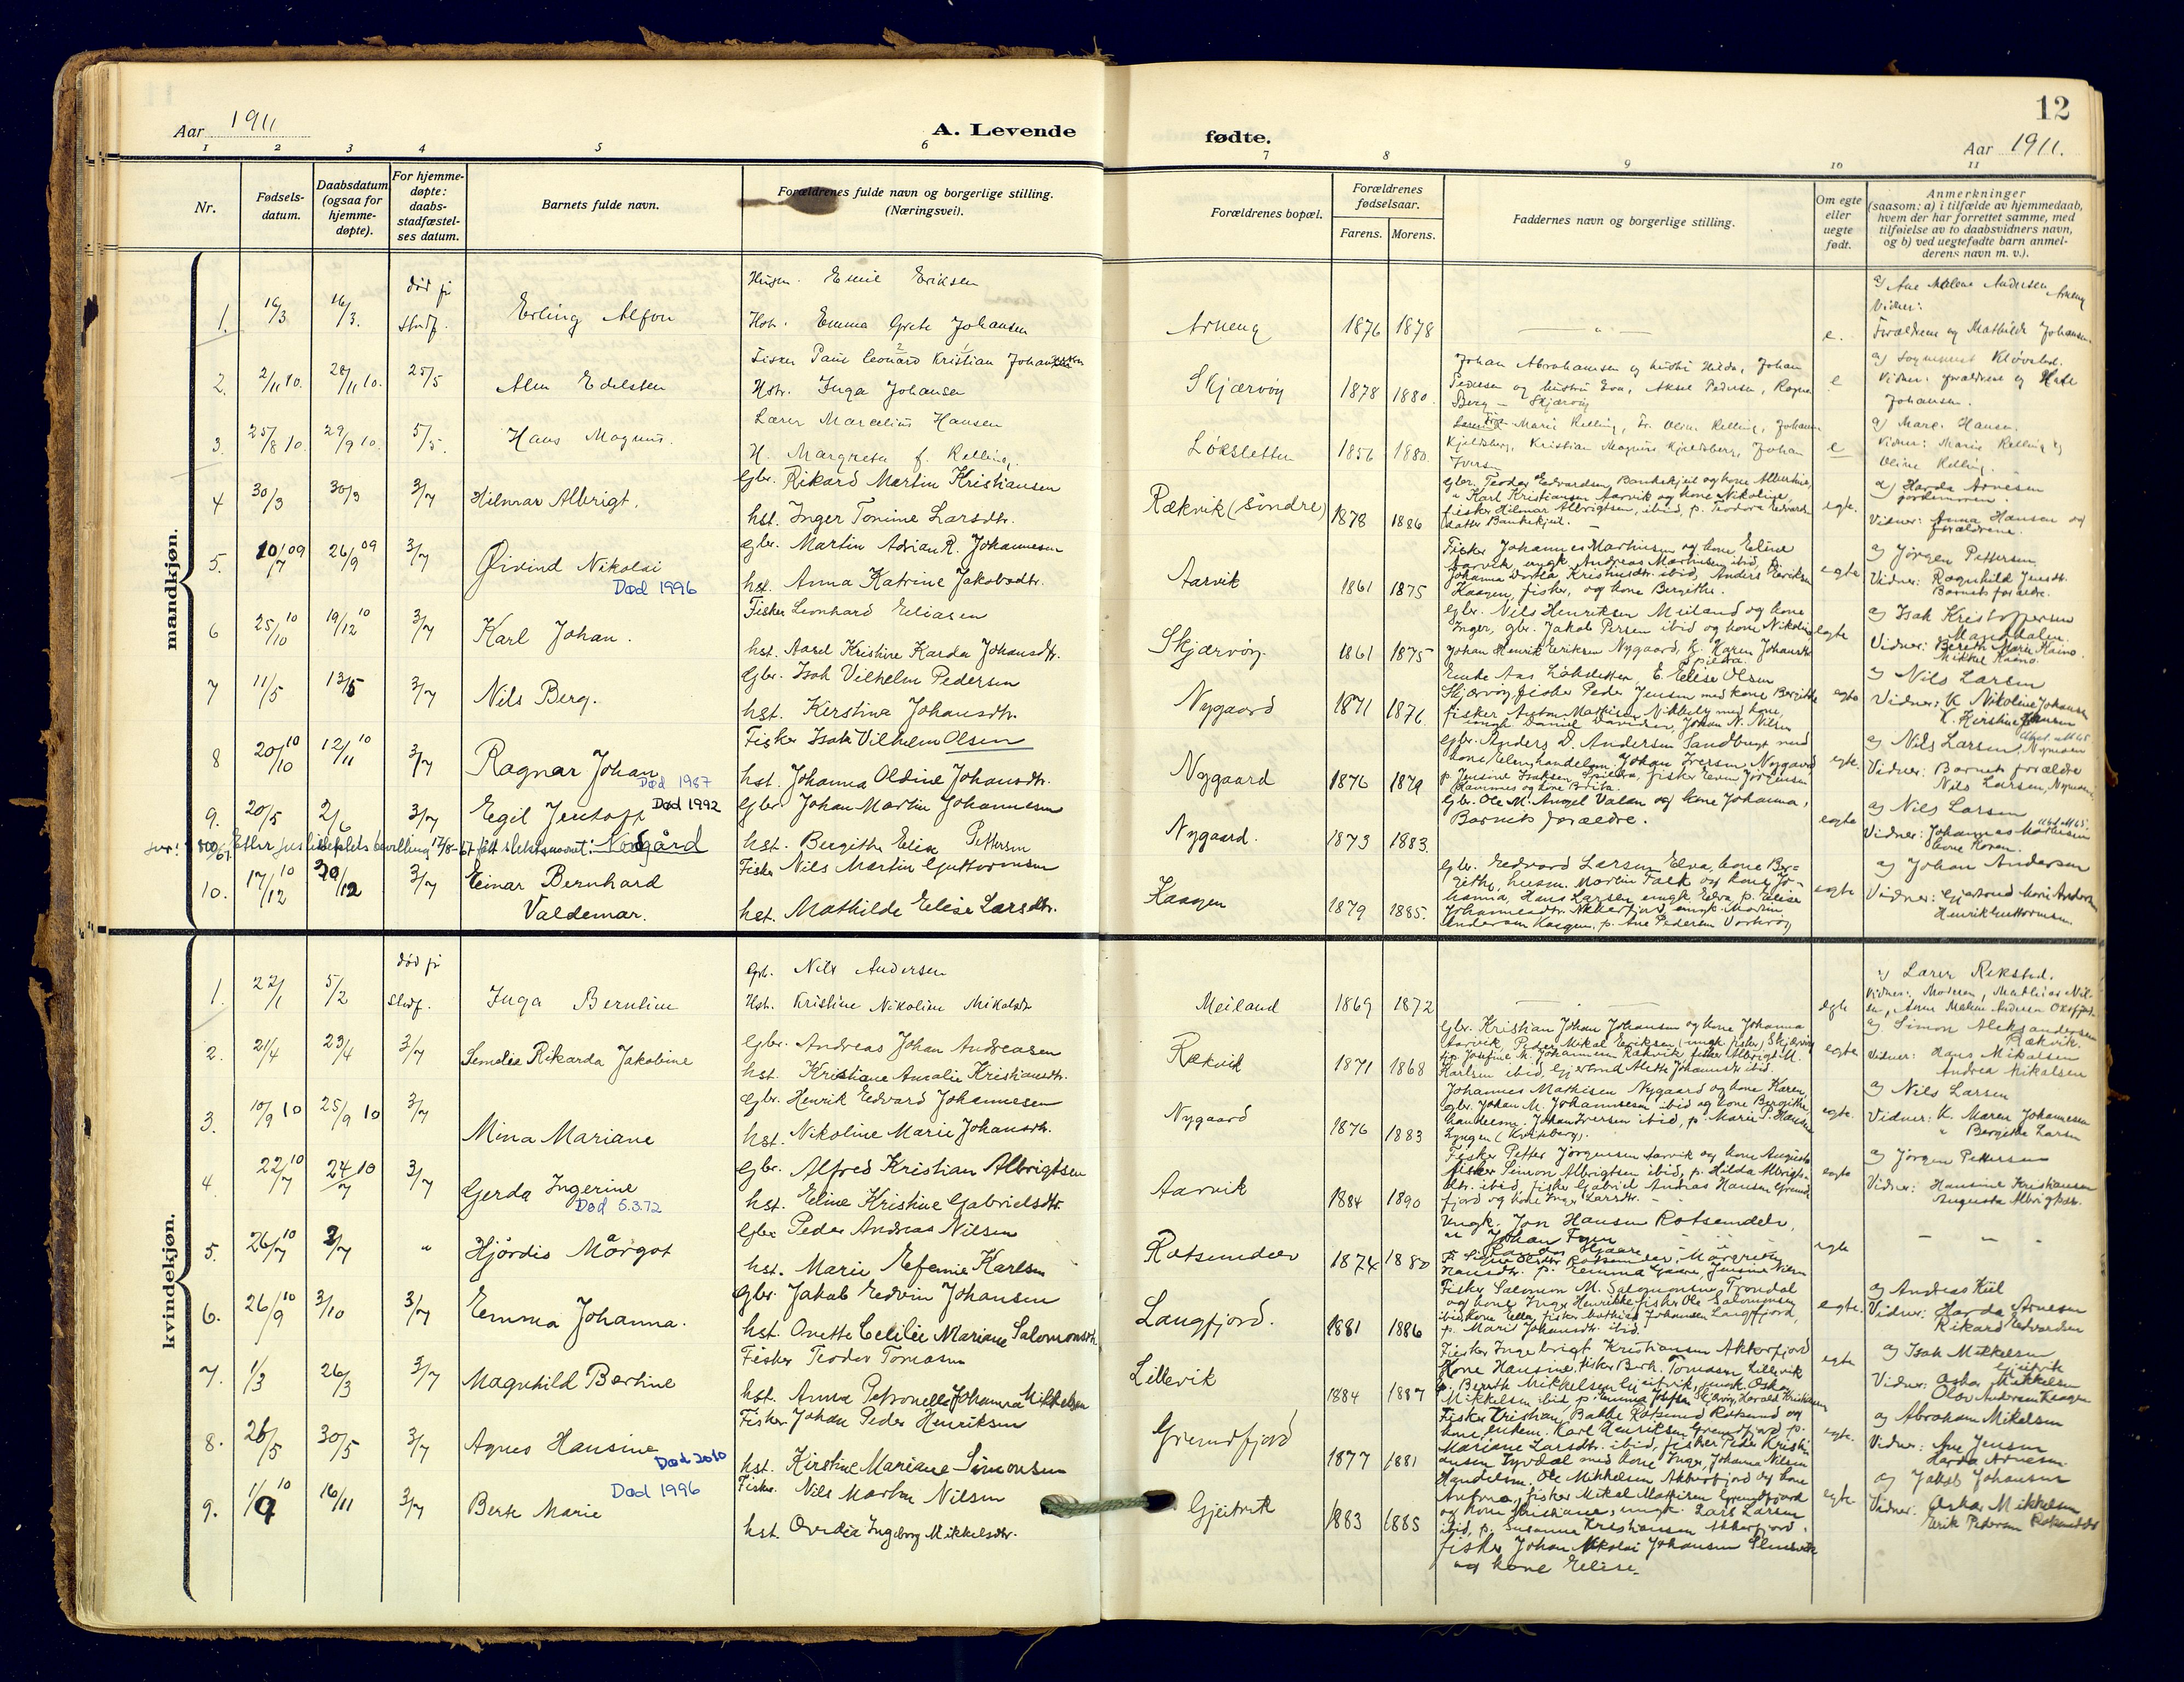 Aar 1911
A. Levende
fødte.
12
Aar 1911.
1 2 3 4 5 6 7 8 9 10 11
Nr.
Fødsels-
datum.
Daabsdatum
(ogsaa for
hjemme-
døpte).
For hjemme-
døpte:
daabs-
stadfæstel-
ses datum.
Barnets fulde navn.
Forældrenes fulde navn og borgerlige stilling.
(Næringsvei).
Forældrenes bopæl.
Forældrenes
fødselsaar.
Farens. Morens.
Faddernes navn og borgerlige stilling.
Om egte
eller
uegte
født.
Anmerkninger
(saasom: a) i tilfælde av hjemmedaab,
hvem der har forrettet samme, med
tilføielse av to daabsvidners navn,
og b) ved uegtefødte barn anmel-
derens navn m. v.).
mandkjøn.
1. 16/3 16/3. død før stadf. Erling Alfon
Husm. Emil Eriksen
Hstr. Emma Grete Johansen
Arneng 1876 1878 e.
Vidner:
Forældrene og Mathilde Johansen.
2. 2/11 10. 28/11 10. 25/5 Alm Edelsten
Fisker Paul Leonard Kristian Johansen
Hstr. Inga Johansen
Skjærvøy 1878 1880. e
Johan Abrahamsen og hustru Hilda, Johan
Pedersen og hustru Eva, Aksel Pedersen, Ragna
Berg — Skjærvøy
Vidner: forældrene og
Johansen.
3. 25/8 10. 29/9 10. 5/5. Hans Magnus.
Lærer Marcelius Hansen
H. Margreta f. Kelling.
Løkslette 1856 1880. e
Marie Kelling, Fr. Oline Kelling, Johan
Kjeldsberg, Kristian Magnus Kjeldsberg, Johan
Iversen
a) Marc. Hansen.
Vidner: Marie Kelling og
Oline Kelling.
4 30/3 30/3 3/7 Hilmar Albrigt.
Gbr. Rikard Martin Kristiansen
hst. Inger Tomine Larsdtr.
Rækvik (Søndre) 1878 1886 egte.
gbr. Teodor Edvardsen Bankekjeil og kone Albertine,
" Karl Kristiansen Aarvik og kone Nikoline,
fisker Hilmar Albrigtsen, ibid, p. Teodora Edvards-
datter Bankekjeil.
a) Harda Arnesen
jordemoren.
Vidner: Anna Hansen og
forældrene.
5. 10/7 09 26/9 09 3/7 Øivind Nikolai
Død 1996
Gbr. Martin Adrian R. Johannesen
hst. Anna Katrine Jakobsdtr.
Aarvik 1861 1875 egte
Fisker Johannes Martinsen og kone Eline
Aarvik, ungk. Andreas Martinsen ibid, p.
Johanna Dortea Kristensdtr. ibid, Anders Eriksen
Kaagen, fisker, og kone Bergithe.
a) Jørgen Pettersen
Vidner: Ragnhild Jensdtr.
Barnets forældre.
6 25/10 10 19/12 10 3/7 Karl Johan.
Fisker Leonhard Eliasen
hst. Aarel Kristine Karda Johansdtr.
Skjærvøy. 1861 1875 egte
Gbr. Nils Henriksen Meiland og kone
Inger, gbr. Jakob Persen ibid og kone Nikoline
Johan Henrik Eriksen Nygaard, K. Karen Johansdtr
Spildra.
a) Isak Kristoffersen
Manddalen.
Vidner: Bereth Marie Kaino.
Mikkel Kaino.
7 11/5 13/5 3/7 Nils Berg.
Gbr. Isak Vilhelm Pedersen
hst. Kerstina Johansdtr.
Nygaard 1871 1876 egte
Enke Aas Løksletten, E. Elise Olsen
Skjærvøy, fisker Peder Jensen med kone Bergithe
fisker Anton Mathisen Nikkeby med kone,
ungk Daniel Davidsen, Johan N. Nilsen
a) Nils Larsen
Vidner: K Nikoline Johansen
K. Kirstine Hansen
8 20/10 10 12/11 10 3/7 Ragnar Johan
Død 1987
Fisker Isak Vilhelm Olsen
hst. Johanna Oldine Johansdtr.
Nygaard 1876 1879 egte.
Gbr. Anders D. Andersen Sandbugt med
kone Elen, handelsm. Johan Iversen Nygaard
p. Jensine Isaksen Spildra, fisker Even Jørgensen
Havnnes og kone Brita.
a) Nils Larsen, Nymoen
Vidner: Barnets forældre
Nils Larsen, Nymoen
9. 20/5 2/6 3/7 Egil Jentoft
Død 1992
Gbr Johan Martin Johannesen
hst. Bergithe Elea Pettersen
Nygaard. 1873 1883. egte
Gbr. Ole M. Angel Valan og kone Johanna,
Barnets forældre.
a) Nils Larsen
Vidner: Johannes Mathisen
kone Karen.
Etter justisdeptets bevilling 17/8-67 fått slektsnavnet: Nordgård
10. 17/12 10 30/12 3/7 Einar Bernhard
Valdemar.
Fisker Nils Martin Guttormsen
hst. Mathilde Elise Larsdtr.
Kaagen 1879 1885. egte
Gbr. Edvard Larsen Elva, kone Ber-
githe, husm. Martin Falk og kone Jo-
hanna, Hans Larsen ungk. Elva, p. Elise
Johannesdtr. Akkerfjord, ungk. Martin
Andersen Kaagen, p. Ane Pedersen Vorterøy
a) Johan Andersen
Vidner: Gjertrud Marie Andersen
Henrik Guttormsen.
kvindekjøn.
1. 22/1 5/2 død før stadf. Inga Berntine
Gbr. Nils Andersen
Hst. Kristine Nikoline Mikalsdtr
Meiland 1869 1872 egte
a) Lærer Rikstad.
Vidner: Moderen, Mathias Nil-
sen, Anne Malene Andersen Oksfjord.
2. 21/4 23/4 3/7 Semelia Rikarda Jakobine
Gbr. Andreas Johan Andreasen
hst. Kristiane Amalie Kristiansdtr.
Rækvik 1871 1868 egte
Gbr. Kristian Johan Johansen og kone Johanna
Aarvik, Peder Mikal Eriksen (ungk. fisker) Skjærvøy
p. Josefine M. Johannesen Rækvik, fisker Albrigt M.
Karlsen ibid, Gjertrud Alette Johannsdtr ibid.
a) Simon Aleksandersen
Rækvik.
Vidner: Hans Mikalsen
Andrea Mikalsen
3. 10/9 10 25/9 10 3/7 Mina Mariane
Gbr. Henrik Edvard Johannesen
hst. Nikoline Marie Johansdtr.
Nygaard 1876 1883 egte.
Johannes Mathisen Nygaard og kone Karen,
gbr. Johan M. Johannesen ibid og kone Bergithe,
handelsm. Johan Iversen ibid, p. Marie P. Hansen
Lyngen (Kvikberg).
a) Nils Larsen
Vidner: K. Maren Johannesen
" Bergitha Larsen
4. 22/7 10 24/7 10 3/7 Gerda Ingerine
Død 5.3.72
Gbr. Alfred Kristian Albrigtsen
hst. Eline Kristine Gabrielsdtr.
Aarvik 1884 1890 egte
Fisker Petter Jørgensen Aarvik og kone Augusta
fisker Simon Albrigtsen ibid, p. Hilda Albrigts-
dtr. ibid, fisker Gabriel Andreas Hansen Grund-
fjord og kone Inger Larsdtr.
a) Jørgen Pettersen
Vidner: Hansine Kristiansen
Augusta Albrigtsen.
5. 26/7 10 2/7 " Hjørdis Margot
Gbr Peder Andreas Nilsen
hst. Marie Efemie Karlsen
Rotsundelv 1874 1880 egte
Ungk. Jon Hansen Rotsundelv,
" Johan Fyen
Hansdtr. p. Emma Gjære, Jensine Nilsen
6. 26/9 10 3/10 3/7 Emma Johanna.
Gbr. Jakob Edvin Johansen
hst. Anette Celilie Mariane Salomonsdtr
Langfjord. 1881 1886 egte.
Fisker Salomon M. Salomonsen Trondal
og kone Inger Henrikke, fisker Ole Salomonsen
ibid, kone Ella, fisker Mathias Johansen Langfjord,
p. Marie Johansdtr. ibid.
a) Andreas Kiil
Vidner: Harda Arnesen
Rikard Edvardsen
7. 1/3 26/3 3/7 Magnhild Bertine
Fisker Teodor Tomasen
hst. Anna Petronelle Johanna Mikkelsen
Lillevik 1884 1887 egte
Fisker Ingebrigt Kristiansen Akkerfjord
Kone Hansine, fisker Berh. Tomasen Lillevik
p. Bereth Mikkelsen Gjeitvik, ungk. Oskar
Mikkelsen ibid, p. Emma Josefsen Skjervøy, Harald Kristiansen
a) Isak Mikkelsen
Gjeitvik
Vidner: Oskar Mikkelsen
Olav Andersen Kaagen
8. 26/5 30/5 3/7 Agnes Hansine
Død 2010
Fisker Johan Peder Henriksen
hst. Kirstine Mariane Simonsen
Grundfjord 1877 1881 egte.
Fisker Kristian Bakke Rotsund Rotsund og
kone, enkem. Karl Henriksen Grundfjord, p.
Mariane Larsdtr. ibid, fisker Peder Kristi-
ansen Lyvdal med kone Inger, Johanna Nilsen
a) Abraham Mikelsen
Vidner: Ane Jensen
Harda Arnesen.
9. 1/9 10 16/11 3/7 Berte Marie
Død 1996
Fisker Nils Martin Nilsen
hst. Ovedia Ingeborg Mikkelsdtr.
Gjeitvik 1883 1885 egte
Handelsm. Ole Mikkelsen Akkerfjord og kone
Anfrea, fisker Mikal Mathisen Grundfjord
og kone Kristiane, ungk. Lars Larsen
ibid, p. Susanne Kristiansen Akkerfjord.
fisker Johan Nikolai Johansen
og kone Elise.
a) Jakob Johansen
Vidner: Oskar Mikkelsen
Erik Pedersen Rotsundelv